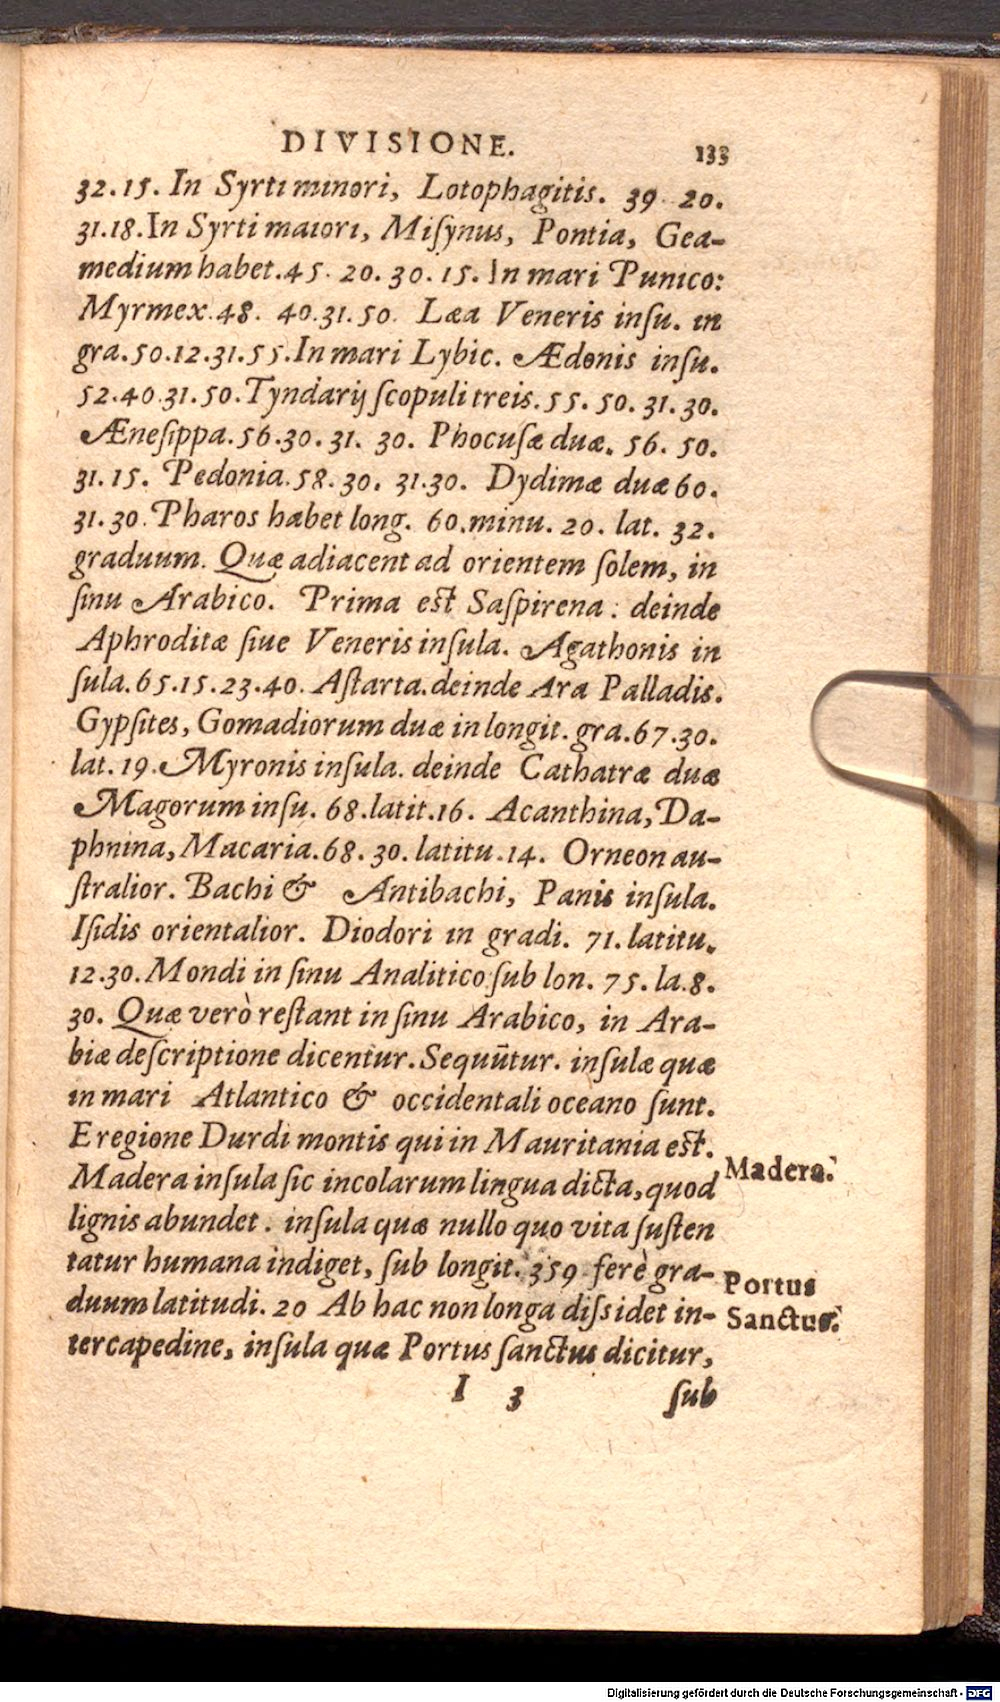 DIVISIONE. 133
32.15. In Syrti minori, Lotophagitis. 39. 20.
31.18. In Syrti maiori, Misynus, Pontia, Gea-
medium habet. 45. 20. 30. 15. In mari Punico:
Myrmex. 48. 40. 31. 50. Læa Veneris insu. in
gra. 50. 12. 31. 55. In mari Lybic. Ædonis insu.
52. 40. 31. 50. Tyndarij scopuli treis. 55. 50. 31. 30.
Ænesippa. 56. 30. 31. 30. Phocusæ duæ. 56. 50.
31. 15. Pedonia. 58. 30. 31. 30. Dydimæ duæ 60.
31. 30. Pharos habet long. 60. minu. 20. lat. 32.
graduum. Quæ adiacent ad orientem solem, in
sinu Arabico. Prima est Saspirena: deinde
Aphroditæ siue Veneris insula. Agathonis in
sula. 65. 15. 23. 40. Astarta. deinde Ara Palladis.
Gypsites, Gomadiorum duæ in longit. gra. 67. 30.
lat. 19. Myronis insula. deinde Cathatræ duæ
Magorum insu. 68. latit. 16. Acanthina, Da-
phnina, Macaria. 68. 30. latitu. 14. Orneon au-
stralior. Bachi & Antibachi, Panis insula.
Isidis orientalior. Diodori in gradi. 71. latitu.
12. 30. Mondi in sinu Analitico sub lon. 75. la. 8.
30. Quæ verò restant in sinu Arabico, in Ara-
biæ descriptione dicentur. Sequūtur. insulæ quæ
in mari Atlantico & occidentali oceano sunt.
E regione Durdi montis qui in Mauritania est.
Madera insula sic incolarum lingua dicta, quod
lignis abundet. insula quæ nullo quo vita susten
tatur humana indiget, sub longit. 359 ferè gra-
duum latitudi. 20 Ab hac non longa dissidet in-
tercapedine, insula quæ Portus sanctus dicitur,
I 3 sub
Madera.
Portus
Sanctus.
Digitalisierung gefördert durch die Deutsche Forschungsgemeinschaft - DFG